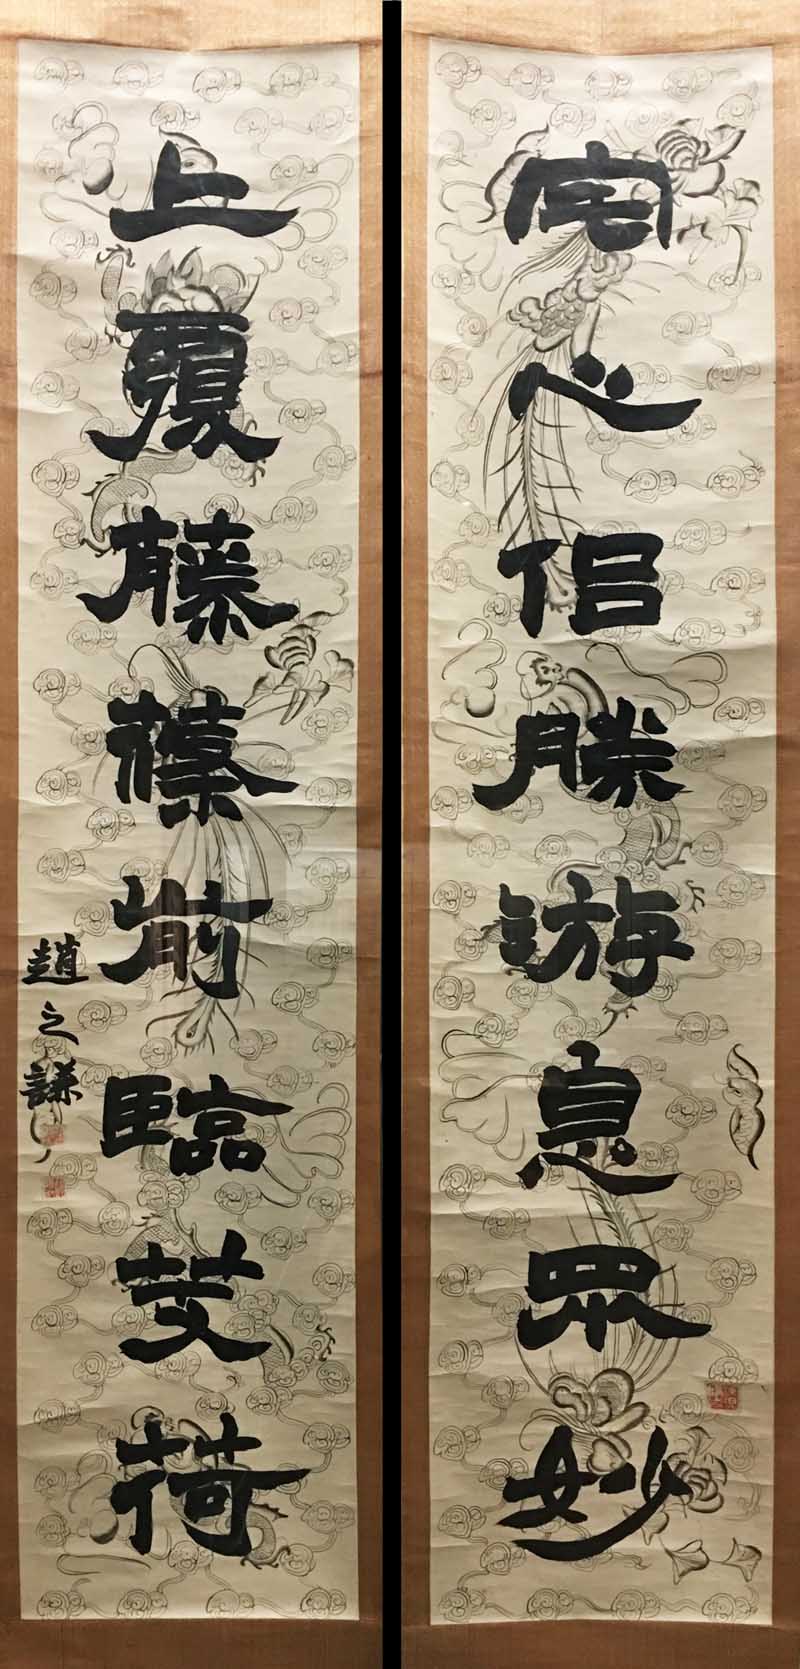 宅心侶勝游息眾妙
上覆藤蓧前臨芰荷
趙之謙